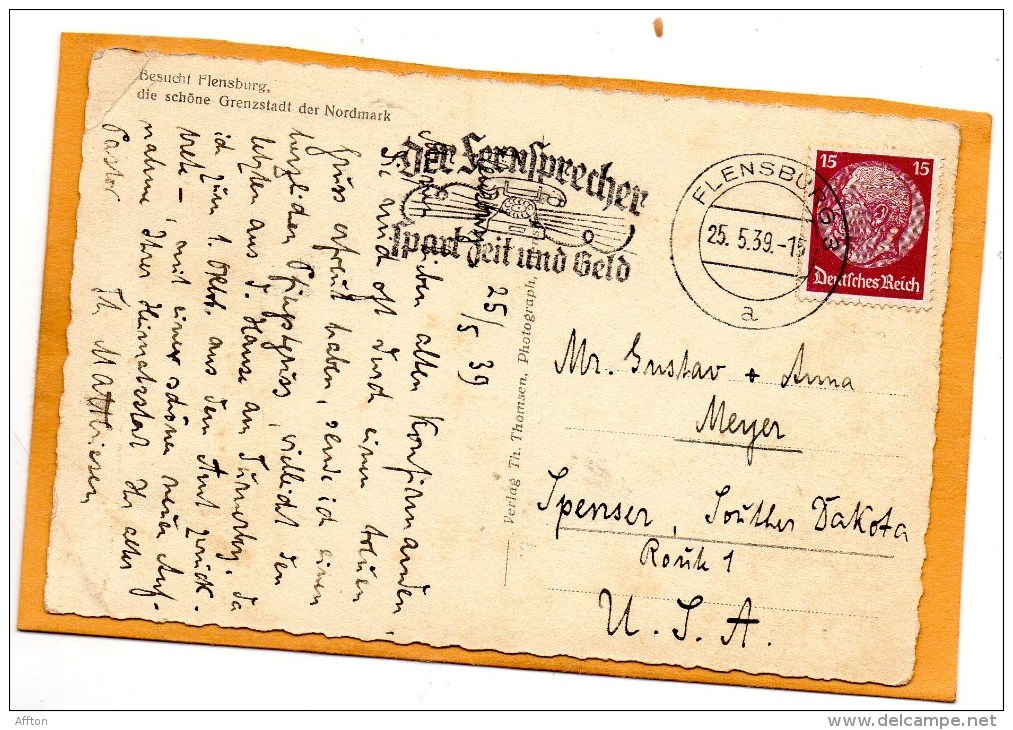 Besucht Flensburg,
die schöne Grenzstadt der Nordmark
Der Fernsprecher
spart Zeit und Geld
FLENSBURG 3
25.5.39.-15
a
15 15
Deutsches Reich
Verlag Th. Thomsen, Photograph,
Flensburg
25/5 39
alten Konfirmanden,
die mich oft durch einen treuen
Gruss erfreut haben, sende ich einen
herzlichen Pfingstgruss, vielleicht den
letzten aus d. Hause am da
ich zum 1. Oktob. aus dem Amt zurück-
trete -, mit einer schönen neuen Auf-
nahme Ihrer Heimatstadt Ihr alter
Pastor Th. Matthiesen
Mr. Gustav + Anna
Meyer
Spenser, Souther Dakota
Route 1
U. S. A.
Affton
delcampe.net